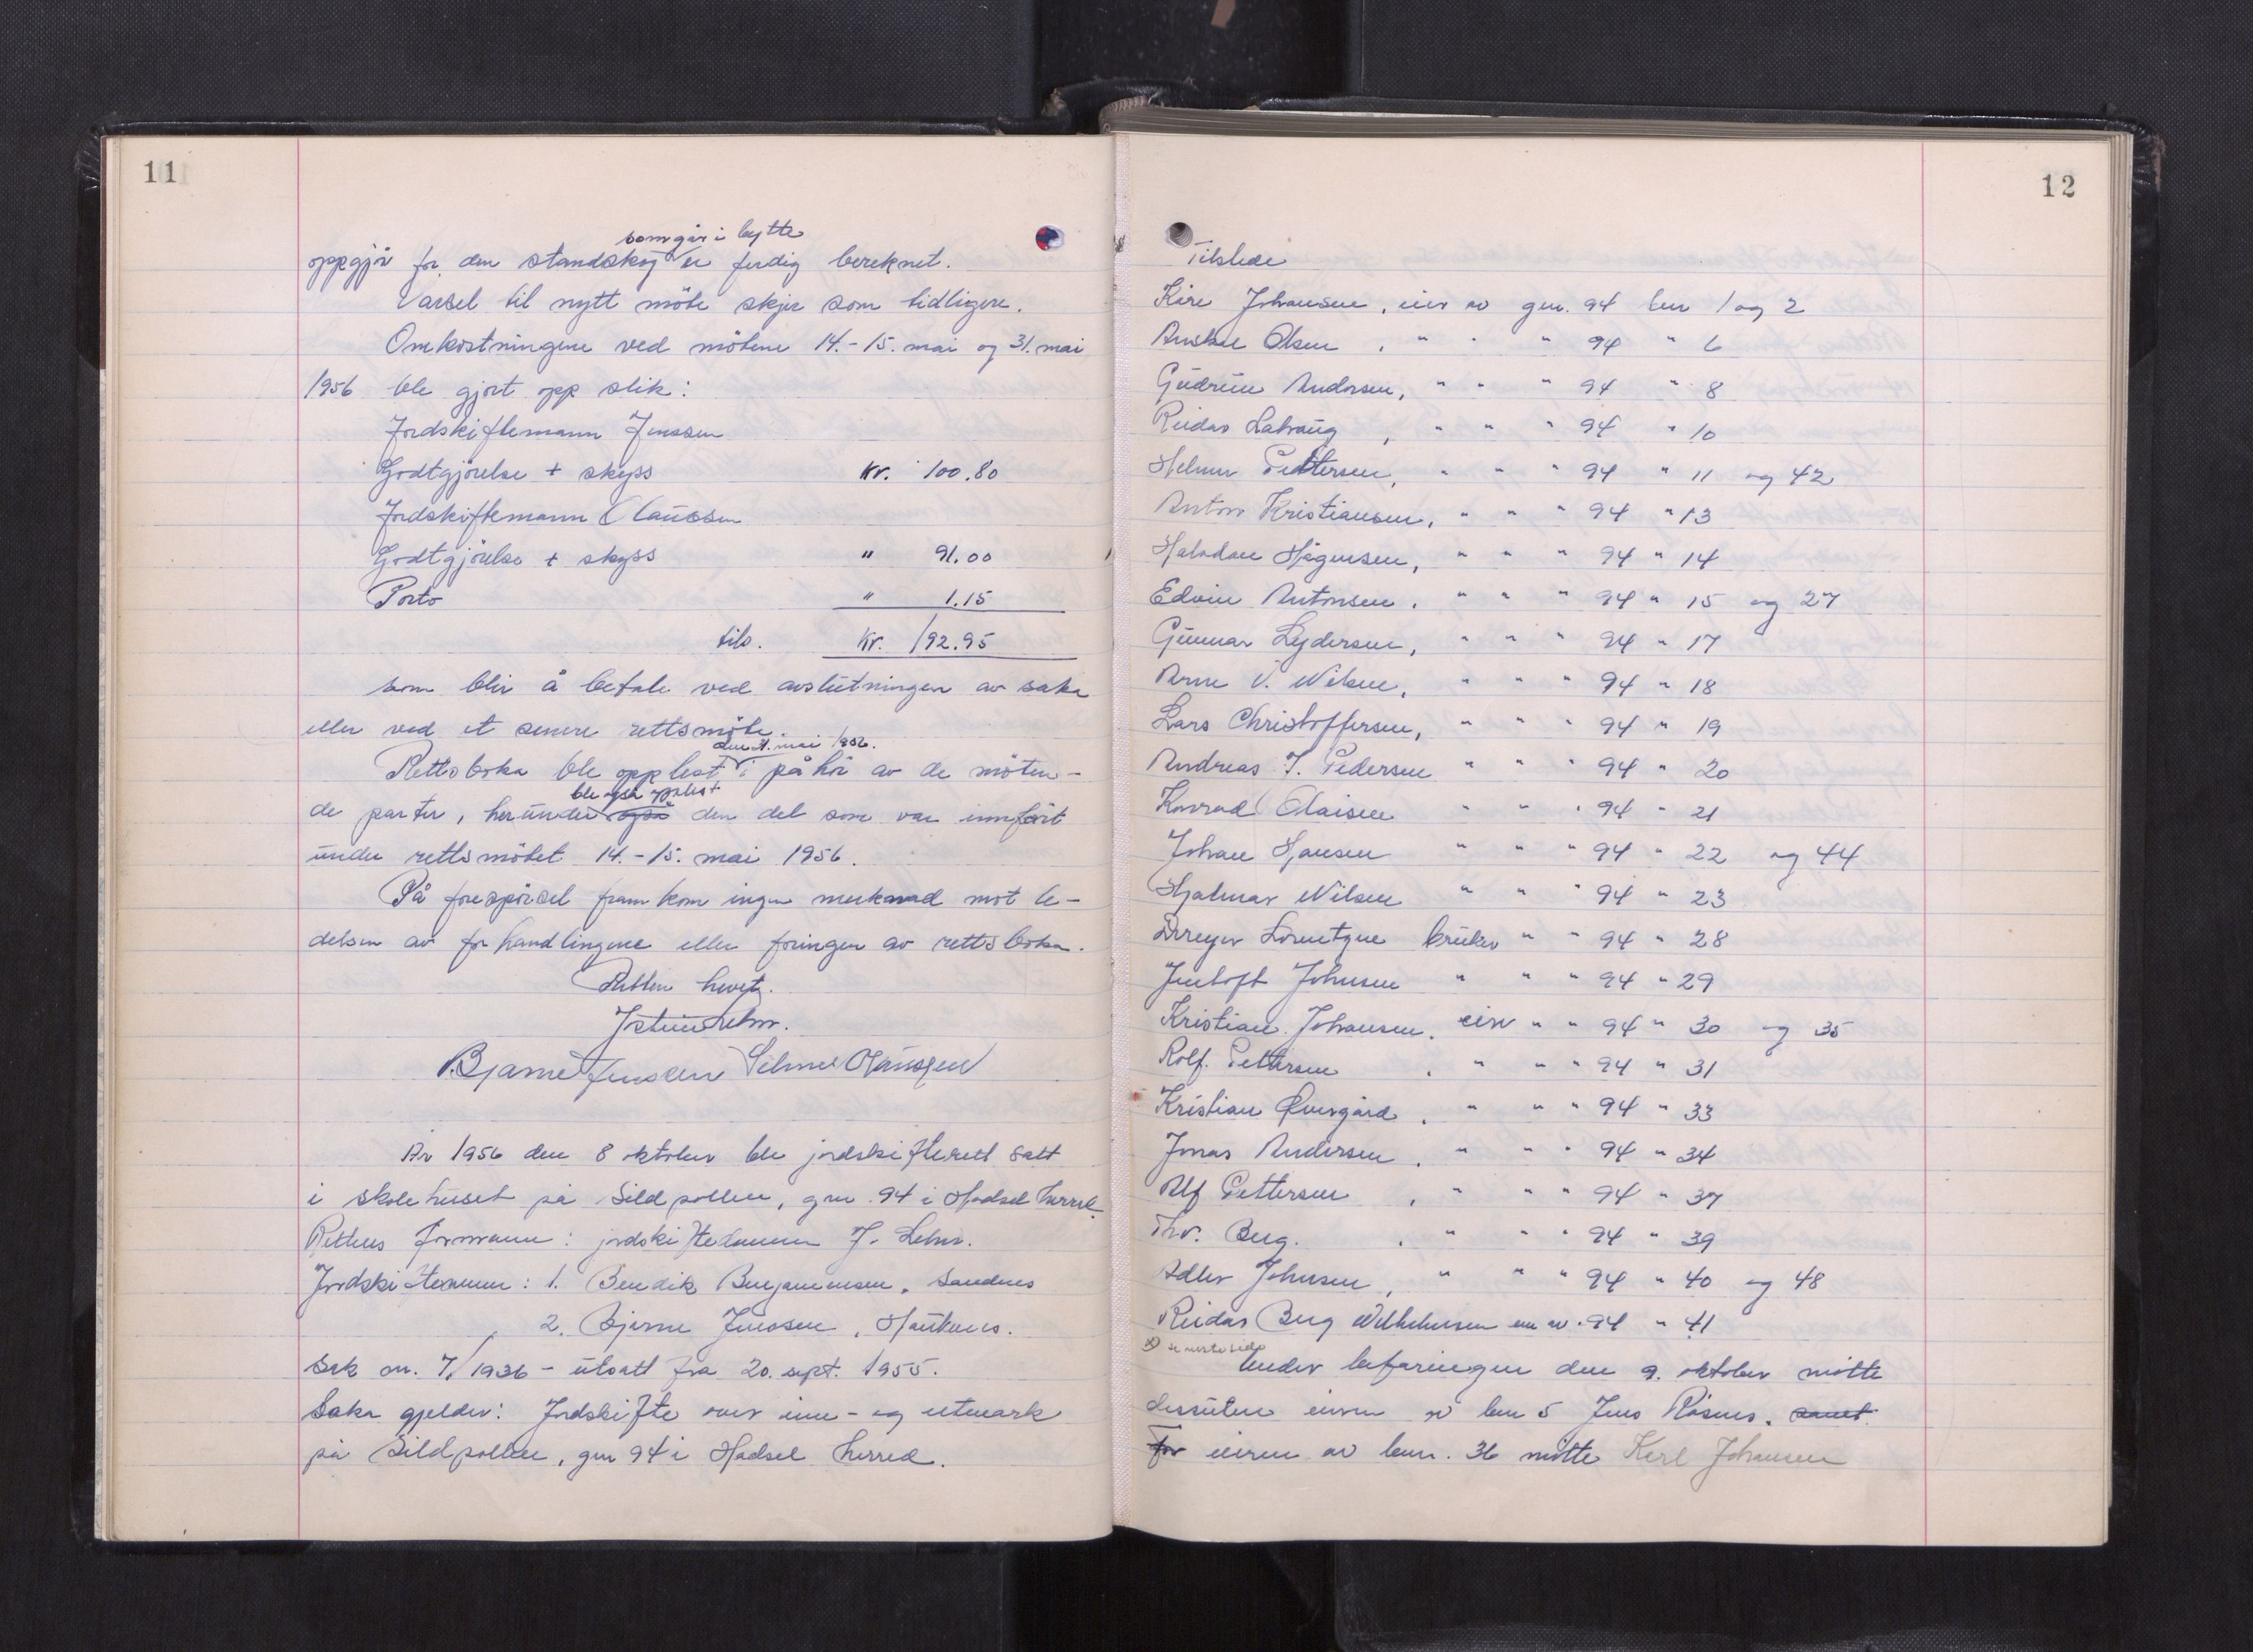 11
som går i bytte
oppgjör for den standskog er ferdig bereknet.
Varsel til nytt möte skjer som tidligere.
Omkostningene ved mötene 14.-15. mai og 31. mai
1956 ble gjort opp slik:
Jordskiftemann Jenssen
Godtgjörelse + skyss kr. 100.80
Jordskiftemann Claussen
Godtgjörelse + skyss " 91.00
Porto " 1.15
tils. kr. 192.95
som blir å betale ved avslutningen av saka
eller ved et senere rettsmöte.
den 31. mai 1956.
Rettsboka ble opplest i påhör av de möten-
ble også opplest
de parter, herunder også den del som var innfört
under rettsmötet 14.-15. mai 1956.
På forespörsel framkom ingen merknad mot le-
delsen av forhandlingene eller föringen av rettsboka.
Retten hevet.
Bjarne Jenssen
År 1956 den 8 oktober ble jordskifterett satt
i skolehuset på Sildpollen, gnr. 94 i Hadsel herred.
Rettens formann: jordskiftedommer J. Lehn.
Jordskiftemenn: 1. Bendik Benjaminsen, Sandnes
2. Bjarne Jenssen, Haukenes.
Sak nr. 7/1936 - utsatt fra 20. sept. 1955.
Saka gjelder: Jordskifte over inn- og utmark
på Sildpollen, gnr 94 i Hadsel herred.
12
Tilstede
Kåre Johansen, eier av gnr. 94 bnr 1 og 2
Anskar Olsen, " " " 94 " 6
Gudrun Andersen, " " " 94 " 8
Reidar Latvaug, " " " 94 " 10
Helmer Pettersen, " " " 94 " 11 og 42
Anton Kristiansen, " " " 94 " 13
Halvdan Hågensen, " " " 94 " 14
Edvin Antonsen, " " " 94 " 15 og 27
Gunnar Lydersen, " " " 94 " 17
Arne V. Nilsen, " " " 94 " 18
Lars Christoffersen, " " " 94 " 19
Andreas J. Pedersen " " " 94 " 20
Konrad Olaisen " " " 94 " 21
Johan Hansen " " " 94 " 22 og 44
Hjalmar Nilsen " " " 94 " 23
Dreyer Lorentzen bruker " " 94 " 28
Jentoft Johnsen " " " 94 " 29
Kristian Johansen, eier " " 94 " 30 og 35
Rolf Pettersen, " " " 94 " 31
Kristian Övergård, " " " 94 " 33
Jonas Andersen, " " " 94 " 34
Alf Pettersen, " " " 94 " 37
Thv. Berg, " " " 94 " 39
Adler Johnsen, " " " 94 " 40 og 48
Reidar Berg Wilhelmsen " 94 " 41
x) se neste side
Under befaringen den 9. oktober mötte
dessuten eieren av bnr 5 Jens Råsnes. samt
For eieren av bnr. 36 mötte Karl Johansen